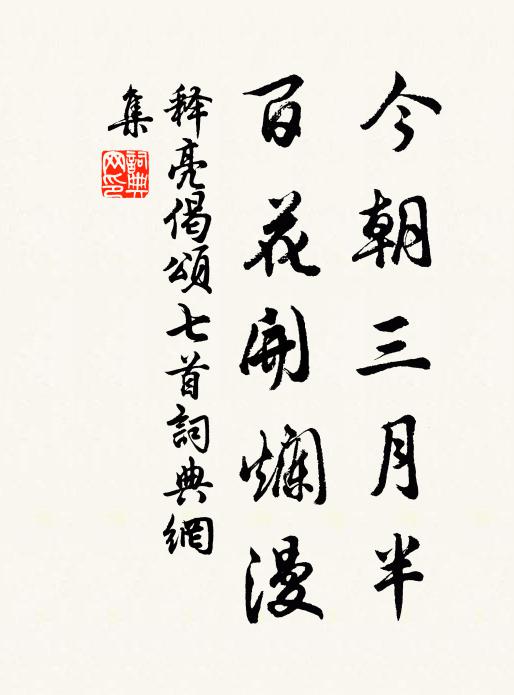 今朝三月半
百花開爛漫
释亮偈頌七首詞典網
集
詞典
网印